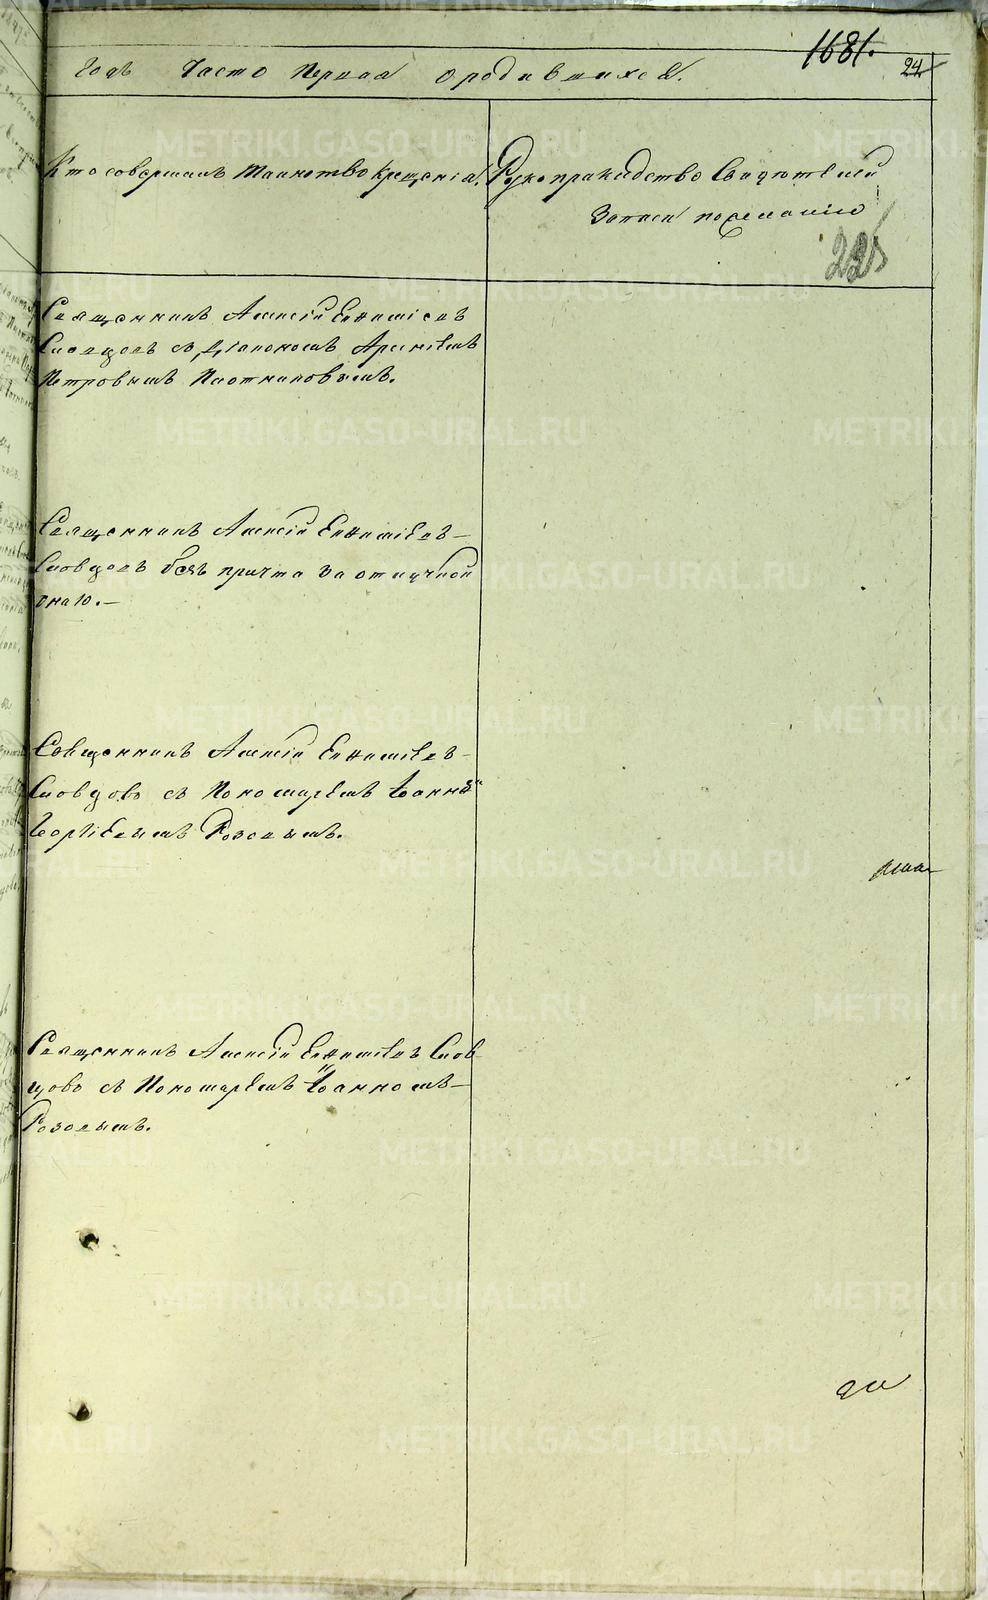 1681.
24
Годъ Часть Первая о родившихся.
Кто совершалъ таинство крещенія.
Рукоприкладство Свидѣтелей
записи по желанію
225
Священникъ Алексій Евѳиміевъ
Словцовъ съ Діакономъ
Петровымъ Плотниковымъ.
Священникъ Алексій Евѳиміевъ
Словцовъ безъ причта за отлучкой
онаго.—
Священникъ Алексій Евѳиміевъ
Словцовъ съ Пономаремъ Іоанномъ
Георгіевымъ Розовымъ.
Священникъ Алексій Евѳиміевъ Слов
цовъ съ Пономаремъ Іоанномъ
Розовымъ.
METRIKI.GASO-URAL.RU